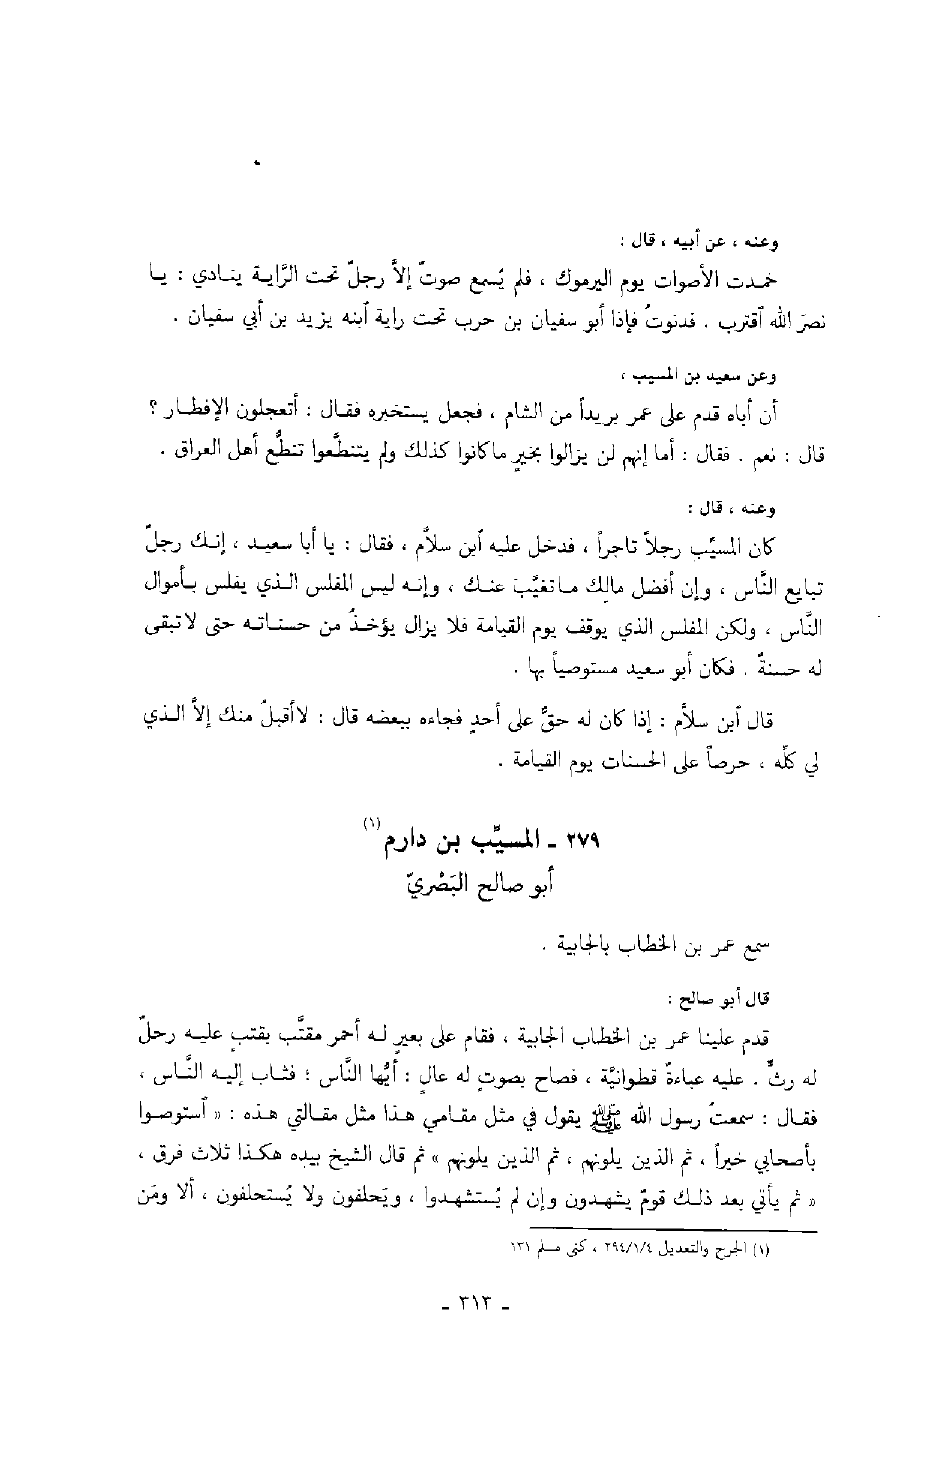 وعنه ، عن أبيه ، قال :
خمدت الأصوات يوم اليرموك ، فلم يُسمع صوتٌ إلاَّ رجلٌ تحت الرَّاية ينادي : يا
نصرَ الله ٱقترب . فدنوتُ فإذا أبو سفيان بن حرب تحت راية ٱبنه يزيد بن أبي سفيان .
وعن سعيد بن المسيب ،
أن أباه قدم على عمر بريداً من الشام ، فجعل يستخبره فقال : أتعجلون الإفطار ؟
قال : نعم . فقال : أما إنهم لن يزالوا بخيرٍ ماكانوا كذلك ولم يتنطَّعوا تنطُّع أهل العراق .
وعنه ، قال :
كان المسيَّب رجلاً تاجراً ، فدخل عليه ٱبن سلاَّم ، فقال : يا أبا سعيد ، إنك رجلٌ
تبايع النَّاس ، وإن أفضل مالك ماتغيَّب عنك ، وإنه ليس المفلس الذي يفلس بأموال
النَّاس ، ولكن المفلس الذي يوقف يوم القيامة فلا يزال يؤخذُ من حسناته حتى لاتبقى
له حسنةٌ . فكان أبو سعيد مستوصياً بها .
قال ٱبن سلاَّم : إذا كان له حقٌّ على أحدٍ فجاءه ببعضه قال : لاأقبلُ منك إلاَّ الذي
لي كلَّه ، حرصاً على الحسنات يوم القيامة .
٢٧٩ - المسيَّب بن دارم (١)
أبو صالح البَصْريّ
سمع عمر بن الخطاب بالجابية .
قال أبو صالح :
قدم علينا عمر بن الخطاب الجابية ، فقام على بعيرٍ له أحمر مقتَّب بقتبٍ عليه رحلٌ
له رثٌّ . عليه عباءةٌ قطوانيَّة ، فصاح بصوتٍ له عالٍ : أيُّها النَّاس ؛ فثاب إليه النَّاس ،
فقال : سمعتُ رسول الله ﷺ يقول في مثل مقامي هذا مثل مقالتي هذه : « ٱستوصوا
بأصحابي خيراً ، ثم الذين يلونهم ، ثم الذين يلونهم » ثم قال الشيخ بيده هكذا ثلاث فرق ،
« ثم يأتي بعد ذلك قومٌ يشهدون وإن لم يُستشهدوا ، ويَحلفون ولا يُستحلفون ، ألا ومَن
(١) الجرح والتعديل ٢٩٤/١/٤ ، كنى مسلم ١٣١
- ٣١٣ -